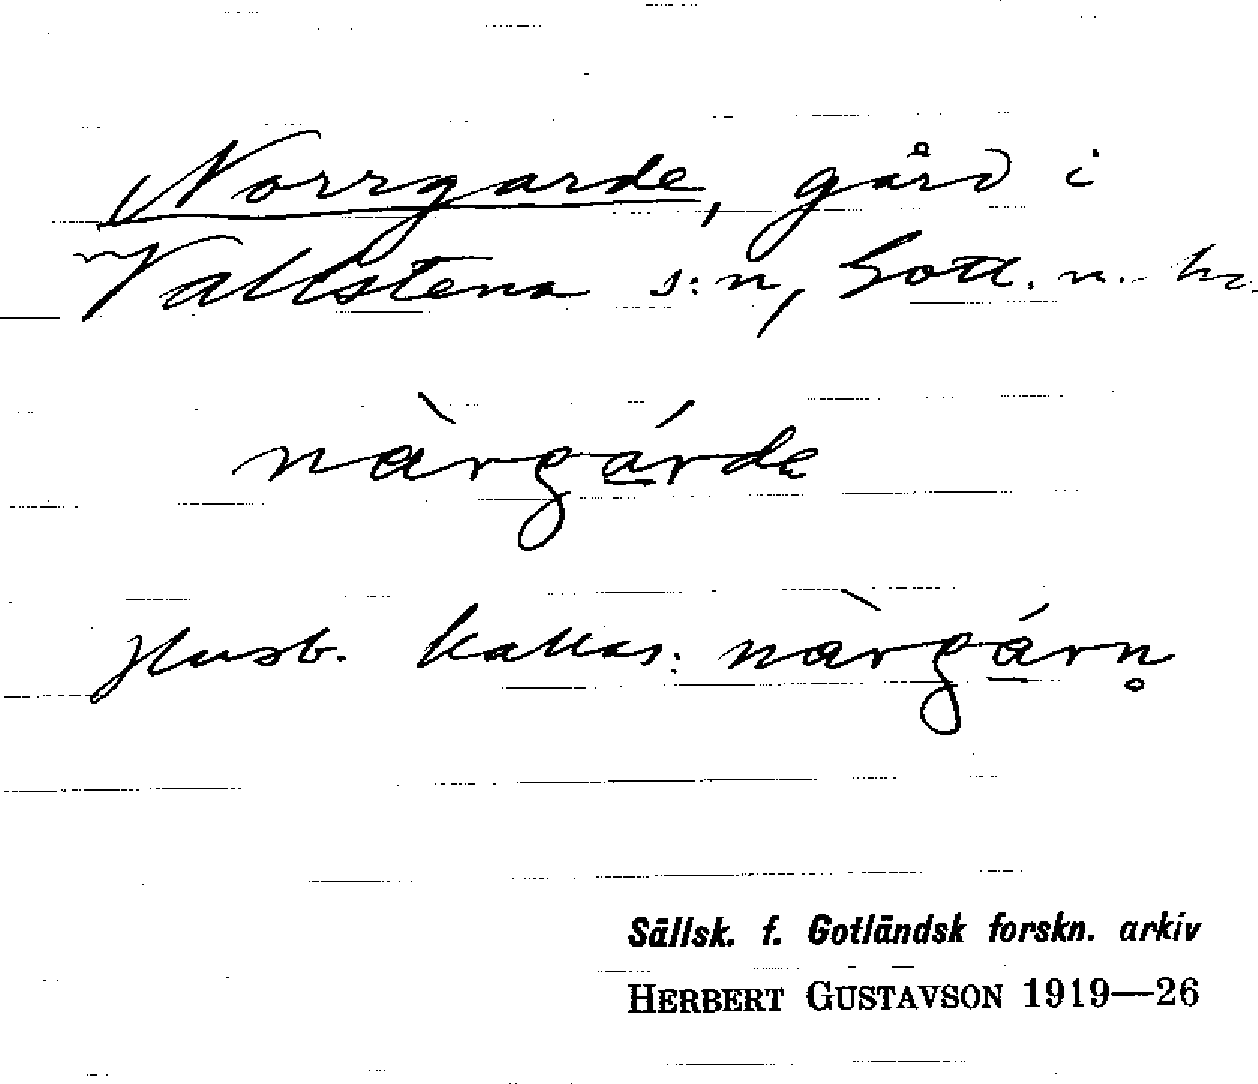 Norrgarde, gård i
Vallstena s:n, Gotl. n. hd.
nàrgárde
Husb. kallas: nàrgárn̥
Sällsk. f. Gotländsk forskn. arkiv
HERBERT GUSTAVSON 1919—26